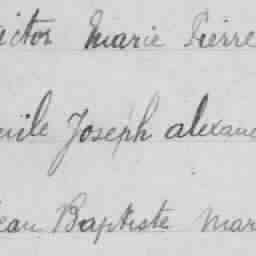 ictor Marie Pierre
mile Joseph alexan
ean Baptiste Mar